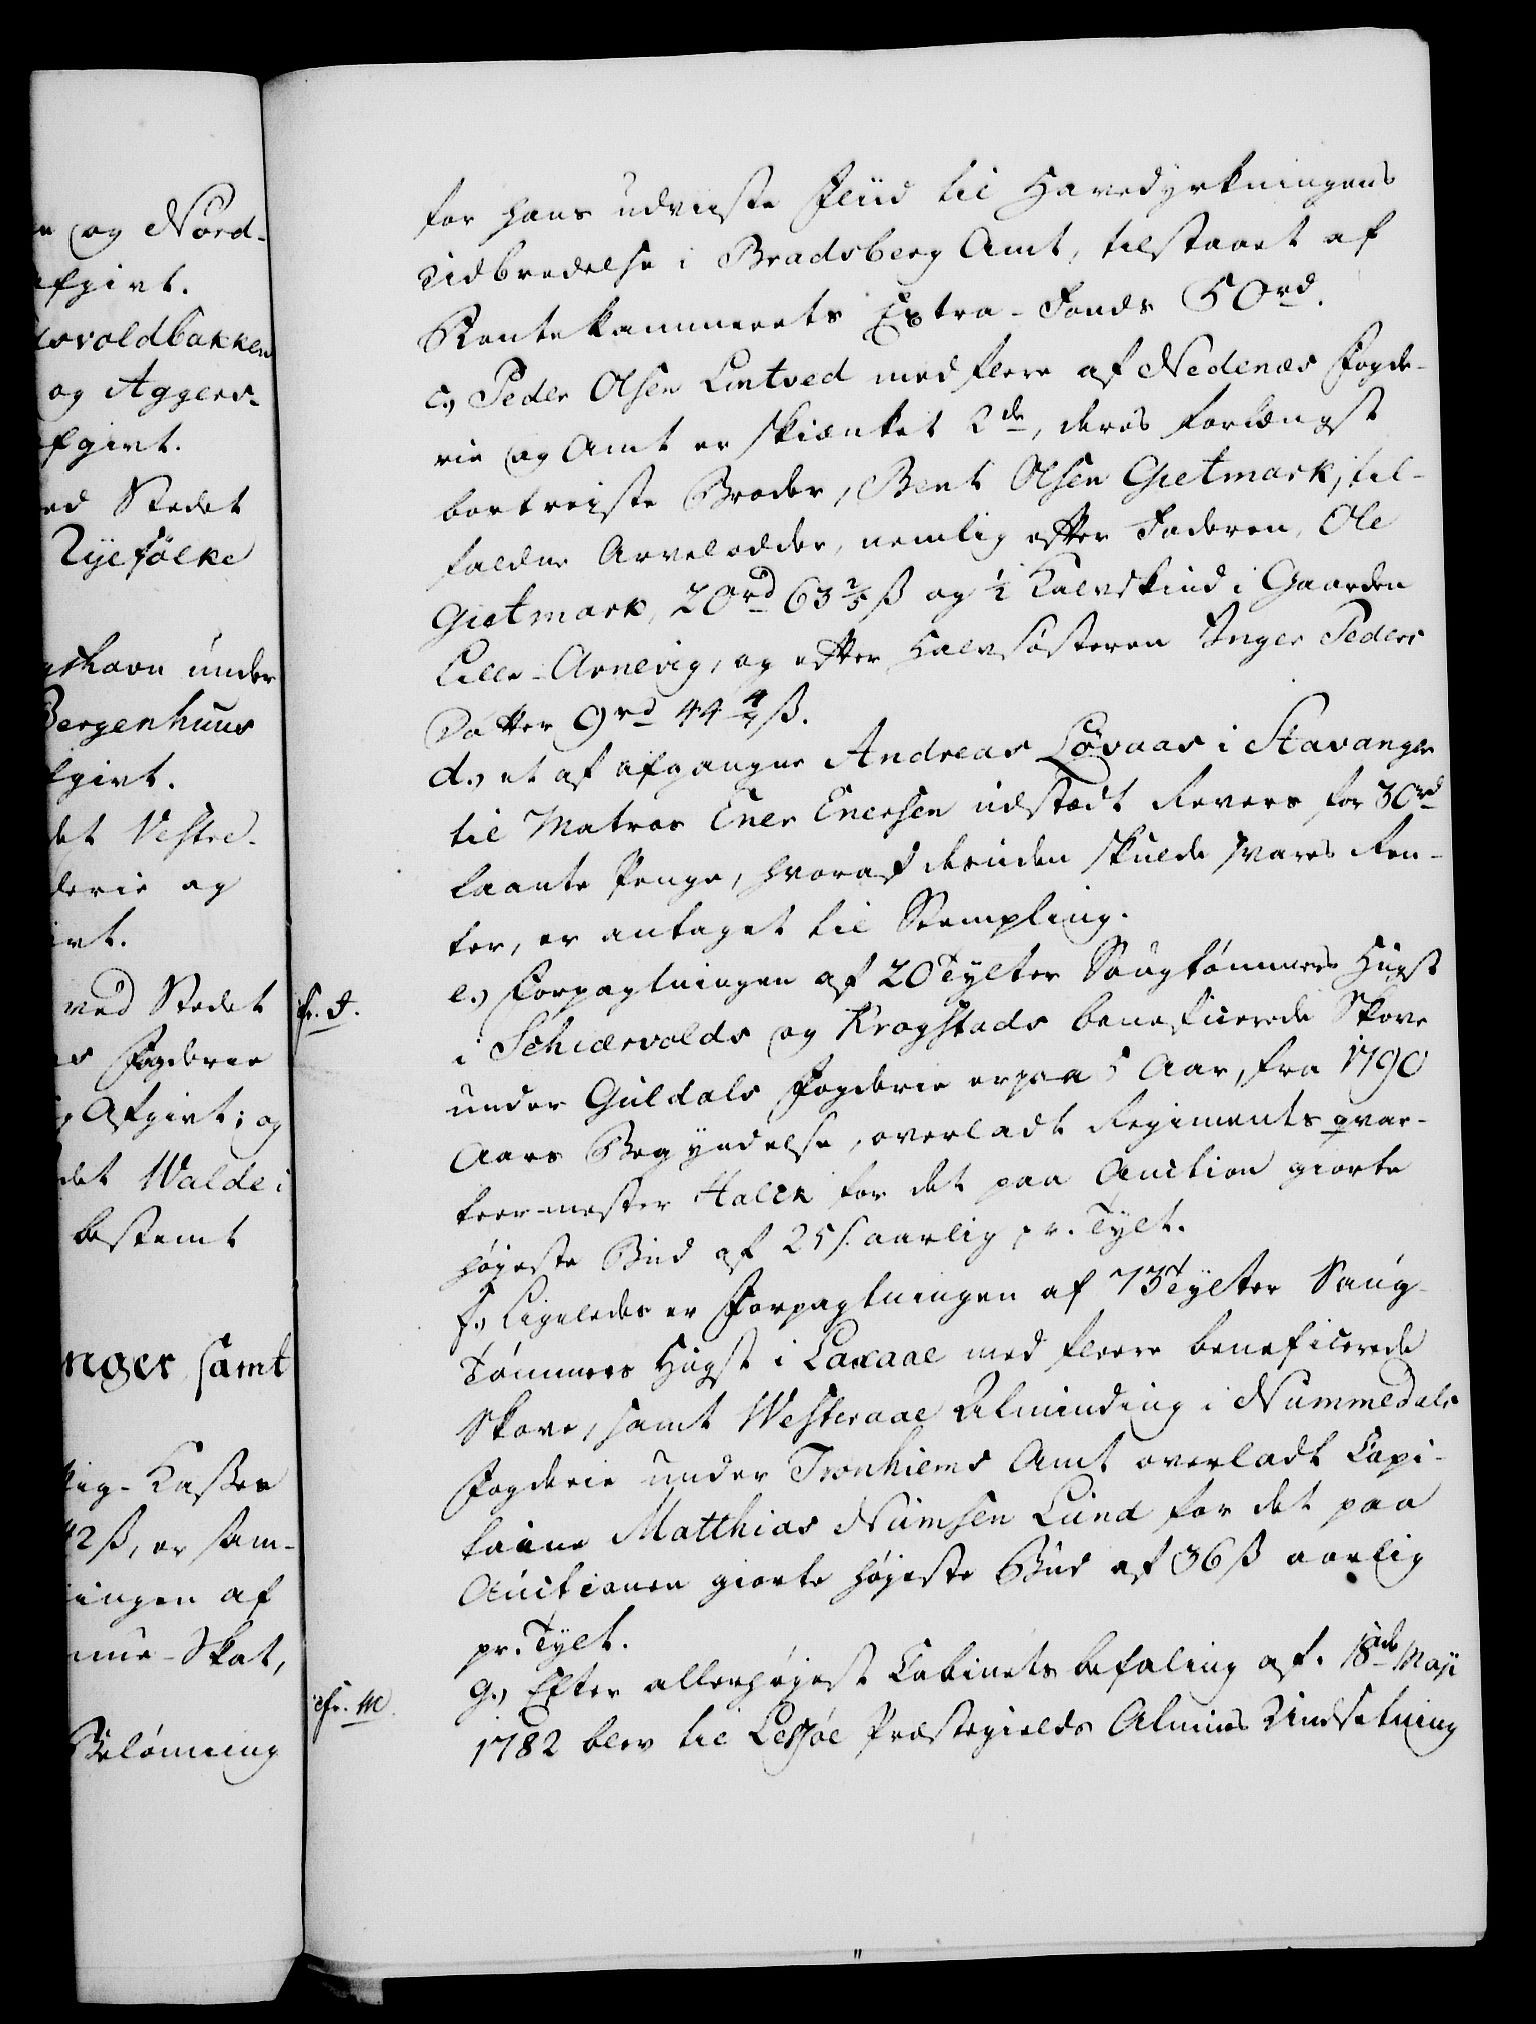 e og Nord-
afgivt.
svoldbakken
og Aggers-
fgivt.
ed Stedet
Ryefölke
gshavn under
Bergenhuus
fgivt.
det Vestre-
derie og
ivt.
ved Stedet
es Fogderie
g Afgivt; og
det Walde i
bestemt
nger samt
tig-Kassen
42 ß, er sam-
ingen af
nue-Skat,
Belönning
for hans udviiste Fliid til Havedyrkningens
Udbredelse i Bradsberg Amt, tilstaaet af
Rentekammerets Extra-Fonds 50 rd.
c.) Peder Olsen Lintved med flere af Nedenæs Fogde-
rie og Amt er skiænket 2de, deres forlængst
bortreiste Broder, Bent Olsen Gietmark, til-
faldne Arvelodder, nemlig efter Faderen, Ole
Gietmark, 20 rd 63 2/5 ß og 1/2 Kalvskind i Gaarden
Lille-Arnevig, og efter Halvsösteren Inger Peders
Datter 9 rd 44 4/7 ß.
d.) et af afgangne Andreas Lövaas i Stavanger
til Matros Ener Enersen udstædt Revers for 30 rd
laante Penge, hvoraf desuden skulde svares Ren-
ter, er antaget til Stempling.
cfr. I.
e.) Forpagtningen af 20 Tylter Saugtömmers Hugst
i Schiærvolds og Krogstads beneficerede Skove
under Guldals Fogderie er paa 5 Aar, fra 1790
Aars Begyndelse, overladt Regimentsqvar-
teermester Halck for det paa Auction giorte
höjeste Bud af 25 s. aarlig pr. Tylt.
f.) Ligeledes er Forpagtningen af 73 Tylter Saug-
Tömmers Hugst i Laxaae med fleere beneficerede
Skove, samt Westeraae Alminding i Nummedals
Fogderie under Tronhiems Amt overladt Capi-
taine Matthias Numsen Lund for det paa
Auctionen giorte höjeste Bud af 36 ß aarlig
pr. Tylt.
cfr. M.
g.) Efter allerhöjest Cabinetsbefaling af 18de Maji
1782 blev til Lessöe Præstegields Almues Undsetning